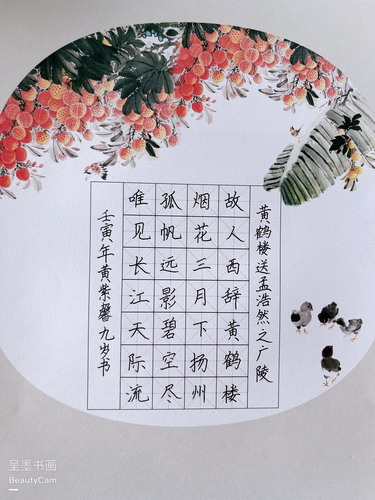 黄鹤楼送孟浩然之广陵
故人西辞黄鹤楼
烟花三月下扬州
孤帆远影碧空尽
唯见长江天际流
壬寅年黄紫馨九岁书
呈墨书画
BeautyCam